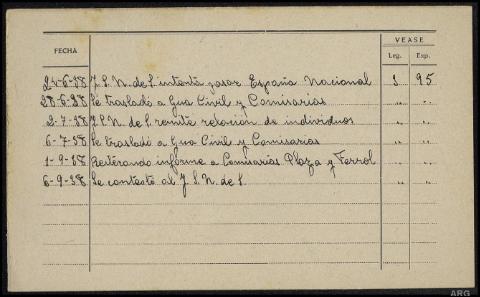 VEASE
FECHA Leg. Exp.
24-6-38 J.S.N. de S. intenta pasar España Nacional 3 95
28-6-38 Se trasladó a Gua Civil y Comisarias " "
2-7-38 J.S.N. de S. remite relación de individuos " "
6-7-38 Se trasladó a Gua Civil y Comisarias " "
1-9-38 Reiterando informe a Comisarias Plaza y Ferrol " "
6-9-38 Se contestó al J.S.N. de S. " "
ARG